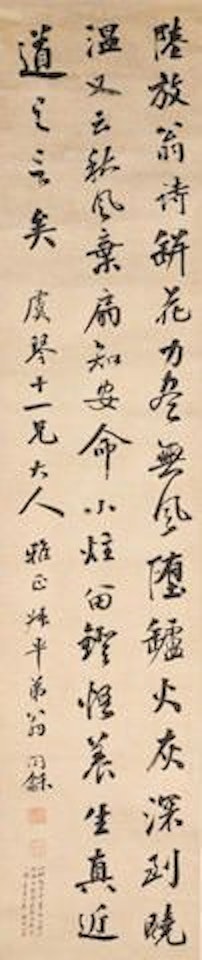 陸放翁詩缾花力盡無風墮鑪火灰深到曉
溫又云秋風棄扇知安命小炷留鐙悟養生真近
道之言矣 虞琴十一兄大人雅正 叔平弟翁同龢